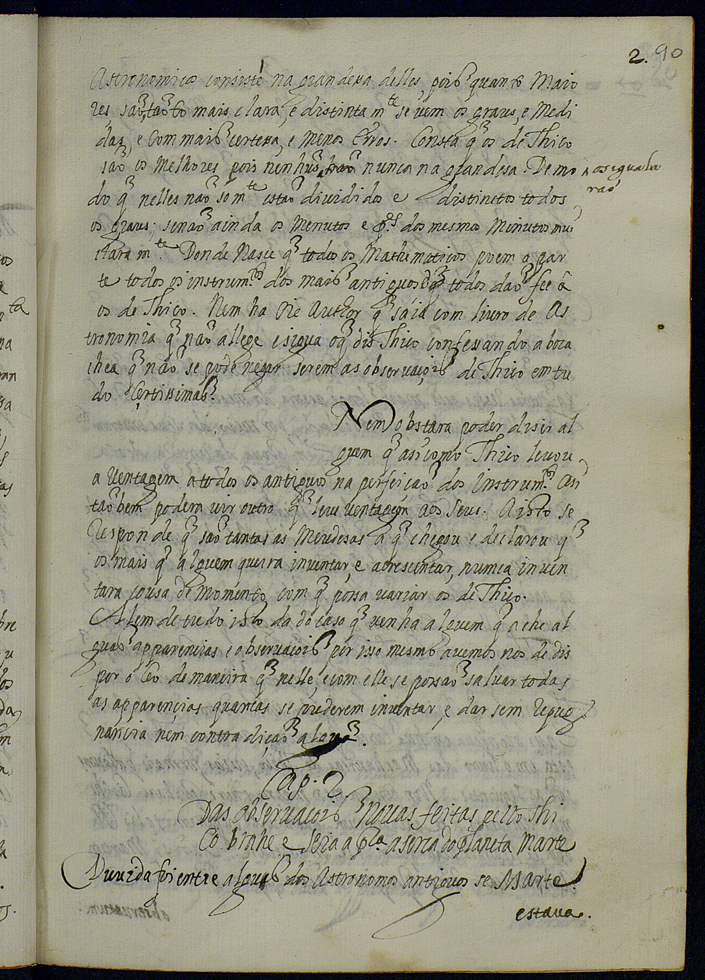 2. 90
Astronomica consiste na grandeza delles, pois quanto Maio
res são tão mais clara, e distinta mte se vem os graus, e Medi
das, e com mais certeza, e menos erros. Consta q os de Thico
são os Melhores pois nenhũs nunca na grandesa. De mo
os eguala
rão
do q nelles não só mte estão divididos e distinctos todos
os graus; senão ainda os Menutos e dos mesmos Minutos mui
clara mte. Donde Nasce q todos os Mathematicos poem a par
te todos os instrumtos dos mais antiguos e q todos dão fee a
os de Thico. Nem ha Author q saia com livro de As
tronomia q não allege e sigua o q dis Thico confessando a boca
chea q não se pode negar serem as observações de Thico em tu
do Certissimas.
Nem obstara poder disir al
guem q asi como Thico levou
a ventagem a todos os antiguos na perfeição dos instrumtos asi
tãobem podem vir outro q leve ventagem aos seus. A isto se
responde q são tantas as Meudesas a q chegou e declarou q
os mais q alguem queira inventar e acresentar, nunca inven
tara cousa de momento, com q possa variar os de Thico.
Alem de tudo isto dado caso q venha alguem q ache al
guas apparencias e observacois por isso mesmo avemos nos de dis
por o Ceo de maneira q nelle, e com elle se possão salvar todas
as apparençias quantas se puderem inventar e dar sem repug
nancia nem contradicão algũa.
Cap. 2.
Das observacois novas feitas pello Thi
co brahe e aserca do planeta Marte
Duvida foi entre alguns dos Astronomos antiguos se Marte
estava.